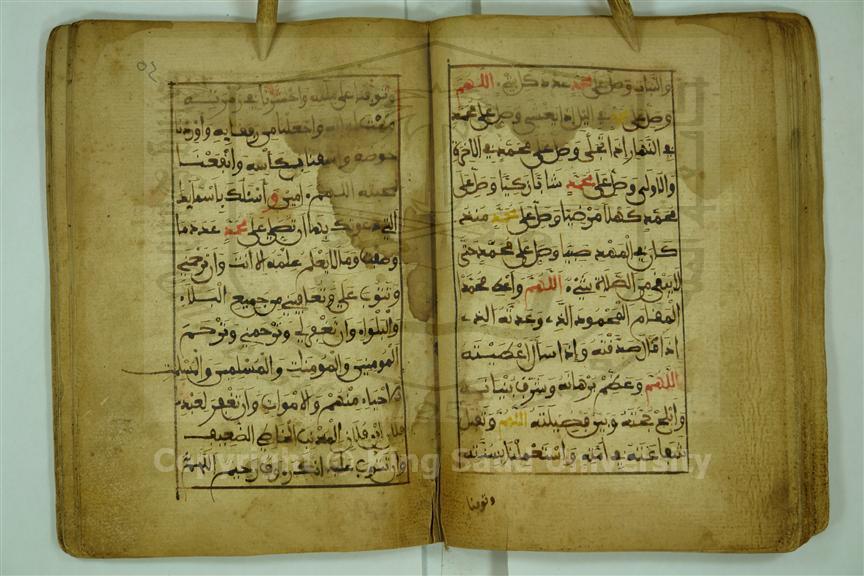 والنبات وصل على محمد عدد كل شيء اللهم
وصل على محمد في اليل اذا يغشى وصل على محمد
في النهار اذا تجلى وصل على محمد في الاخرة
والاولى وصل على محمد شابا زكيا وصل على
محمد كهلا مرضيا وصل على محمد منذ
كان في المهد صبيا وصل على محمد حتى
لا يبقى من الصلاة شيء اللهم واعط محمدا
المقام المحمود الذي وعدته الذي
اذا قال صدقته واذا سال اعطيته
اللهم وعظم برهانه وشرف بنيانه
وابلج حجته وبين فضيلته اللهم وتقبل
شفاعته في امته واستعملنا بسنته
وتوفنا
50
وتوفنا على ملته واحشرنا في زمرته
وتحت لوائه واجعلنا من رفقائه واوردنا
حوضه واسقنا بكأسه وانفعنا
بمحبته اللهم امين وأسئلك باسمائك
التي دعوتك بها ان تصلي على محمد عدد ما
وصفت ومما لا يعلم علمه الا انت وان ترحمني
وتتوب علي وتعافيني من جميع البلاء
والبلواء وان تغفر لي وترحمني وترحم
المومنين والمومنات والمسلمين والمسلمات
الاحياء منهم والاموات وان تغفر لعبدك
فلان ابن فلان المذنب الخاطئ الضعيف
وان تتوب عليه انك غفور رحيم اللهم
Copyright © King Saud University